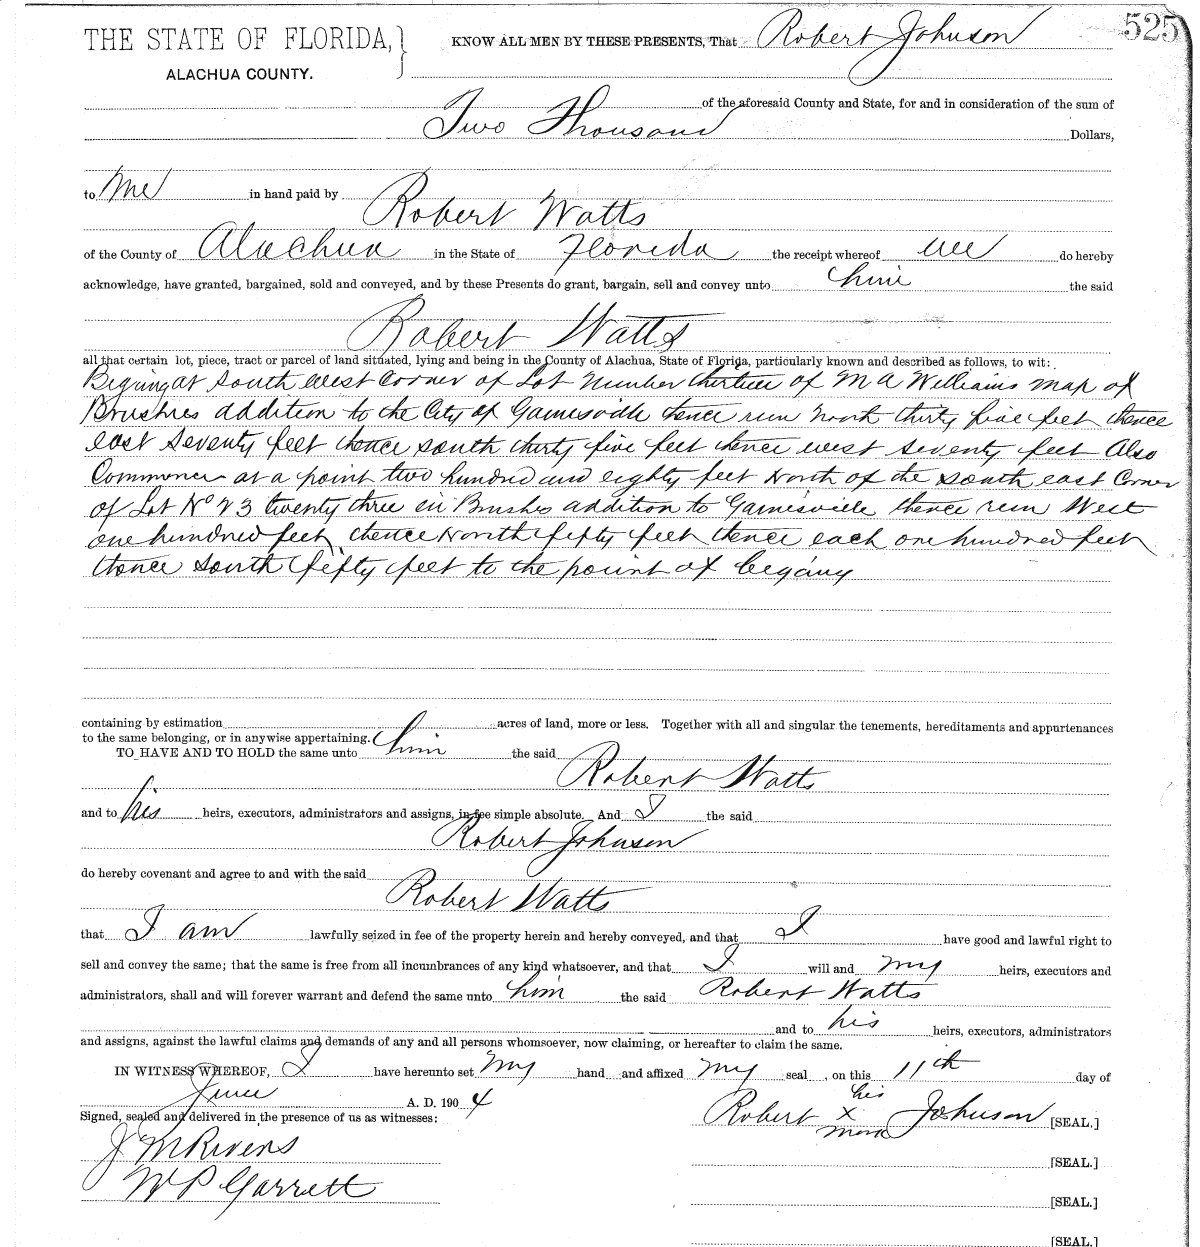 525
THE STATE OF FLORIDA,
ALACHUA COUNTY.
KNOW ALL MEN BY THESE PRESENTS, That Robert Johnson
of the aforesaid County and State, for and in consideration of the sum of
Two Thousand Dollars,
to me in hand paid by
Robert Watts
of the County of Alachua in the State of Florida the receipt whereof do hereby
acknowledge, have granted, bargained, sold and conveyed, and by these Presents do grant, bargain, sell and convey unto him the said
Robert Watts
all that certain lot, piece, tract or parcel of land situated, lying and being in the County of Alachua, State of Florida, particularly known and described as follows, to wit:
Begining at South West Corner of Lot Number thirteen of M A Williams map of
Brushes addition to the City of Gainesville thence run North thirty five feet thence
east seventy feet thence south thirty five feet thence west seventy feet Also
Commence at a point two hundred and eighty feet North of the south east Corner
of Lot No 23 twenty three in Brushes addition to Gainesville thence run West
one hundred feet thence North fifty feet thence each one hundred feet
thence south fifty feet to the point of
containing by estimation acres of land, more or less. Together with all and singular the tenements, hereditaments and appurtenances
to the same belonging, or in anywise appertaining.
TO HAVE AND TO HOLD the same unto him the said
Robert Watts
and to his heirs, executors, administrators and assigns, in fee simple absolute. And I the said
Robert Johnson
do hereby covenant and agree to and with the said
Robert Watts
that I am lawfully seized in fee of the property herein and hereby conveyed, and that I have good and lawful right to
sell and convey the same; that the same is free from all incumbrances of any kind whatsoever, and that I will and my heirs, executors and
administrators, shall and will forever warrant and defend the same unto him the said Robert Watts
and to his heirs, executors, administrators
and assigns, against the lawful claims and demands of any and all persons whomsoever, now claiming, or hereafter to claim the same.
IN WITNESS WHEREOF, I have hereunto set my hand and affixed my seal, on this 11th day of
June A. D. 1904
Signed, sealed and delivered in the presence of us as witnesses:
his
Robert x Johnson [SEAL.]
mark
J M Rivers
[SEAL.]
W P Garrett
[SEAL.]
[SEAL.]